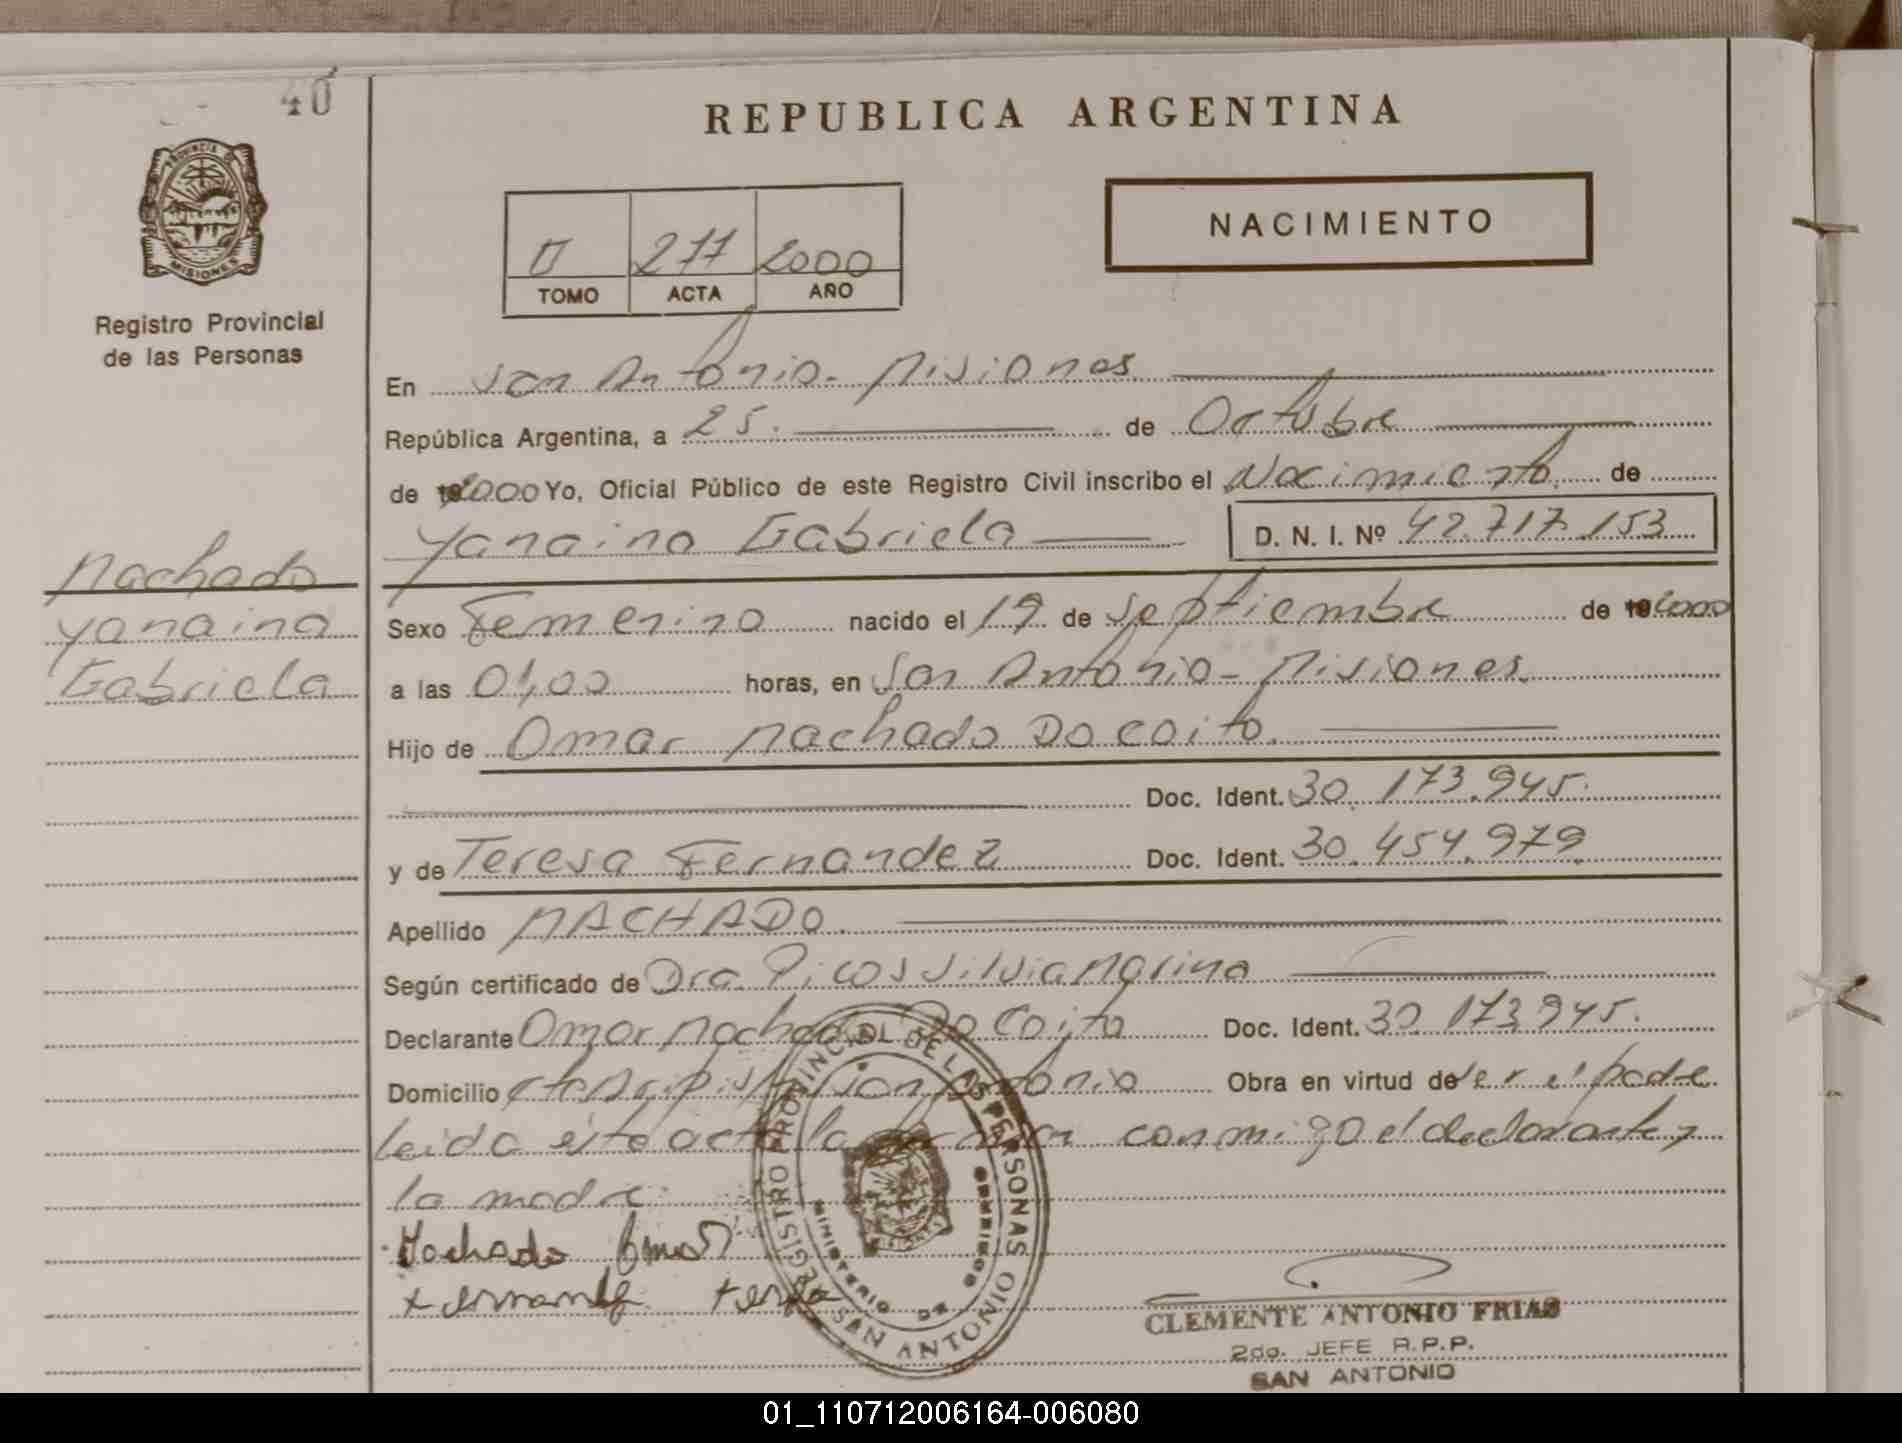 40
PROVINCIA DE
MISIONES
Registro Provincial
de las Personas
REPUBLICA ARGENTINA
II 277 2000
TOMO ACTA AÑO
NACIMIENTO
En San Antonio - Misiones
República Argentina, a 25 de Octubre
de 2000 Yo, Oficial Público de este Registro Civil inscribo el Nacimiento de
Yanaina Gabriela D. N. I. Nº 42.717.153
Machado
Yanaina
Gabriela
Sexo Femenino nacido el 19 de Septiembre de 2000
a las 01,00 horas, en San Antonio - Misiones.
Hijo de Omar Machado Do Coito.
Doc. Ident. 30.173.945.
y de Teresa Fernandez Doc. Ident. 30.454.979
Apellido MACHADO.
Según certificado de Dra. Picos Silvia Marina
Declarante Omar Machado Do Coito Doc. Ident. 30.173.945.
Domicilio San Antonio Obra en virtud de ser el padre
Leida este acta la firman conmigo el declarante y
la madre
Machado Omar
Fernandez Teresa
REGISTRO PROVINCIAL DE LAS PERSONAS
MINISTERIO DE GOBIERNO
SAN ANTONIO
CLEMENTE ANTONIO FRIAS
2do. JEFE R.P.P.
SAN ANTONIO
01_110712006164-006080